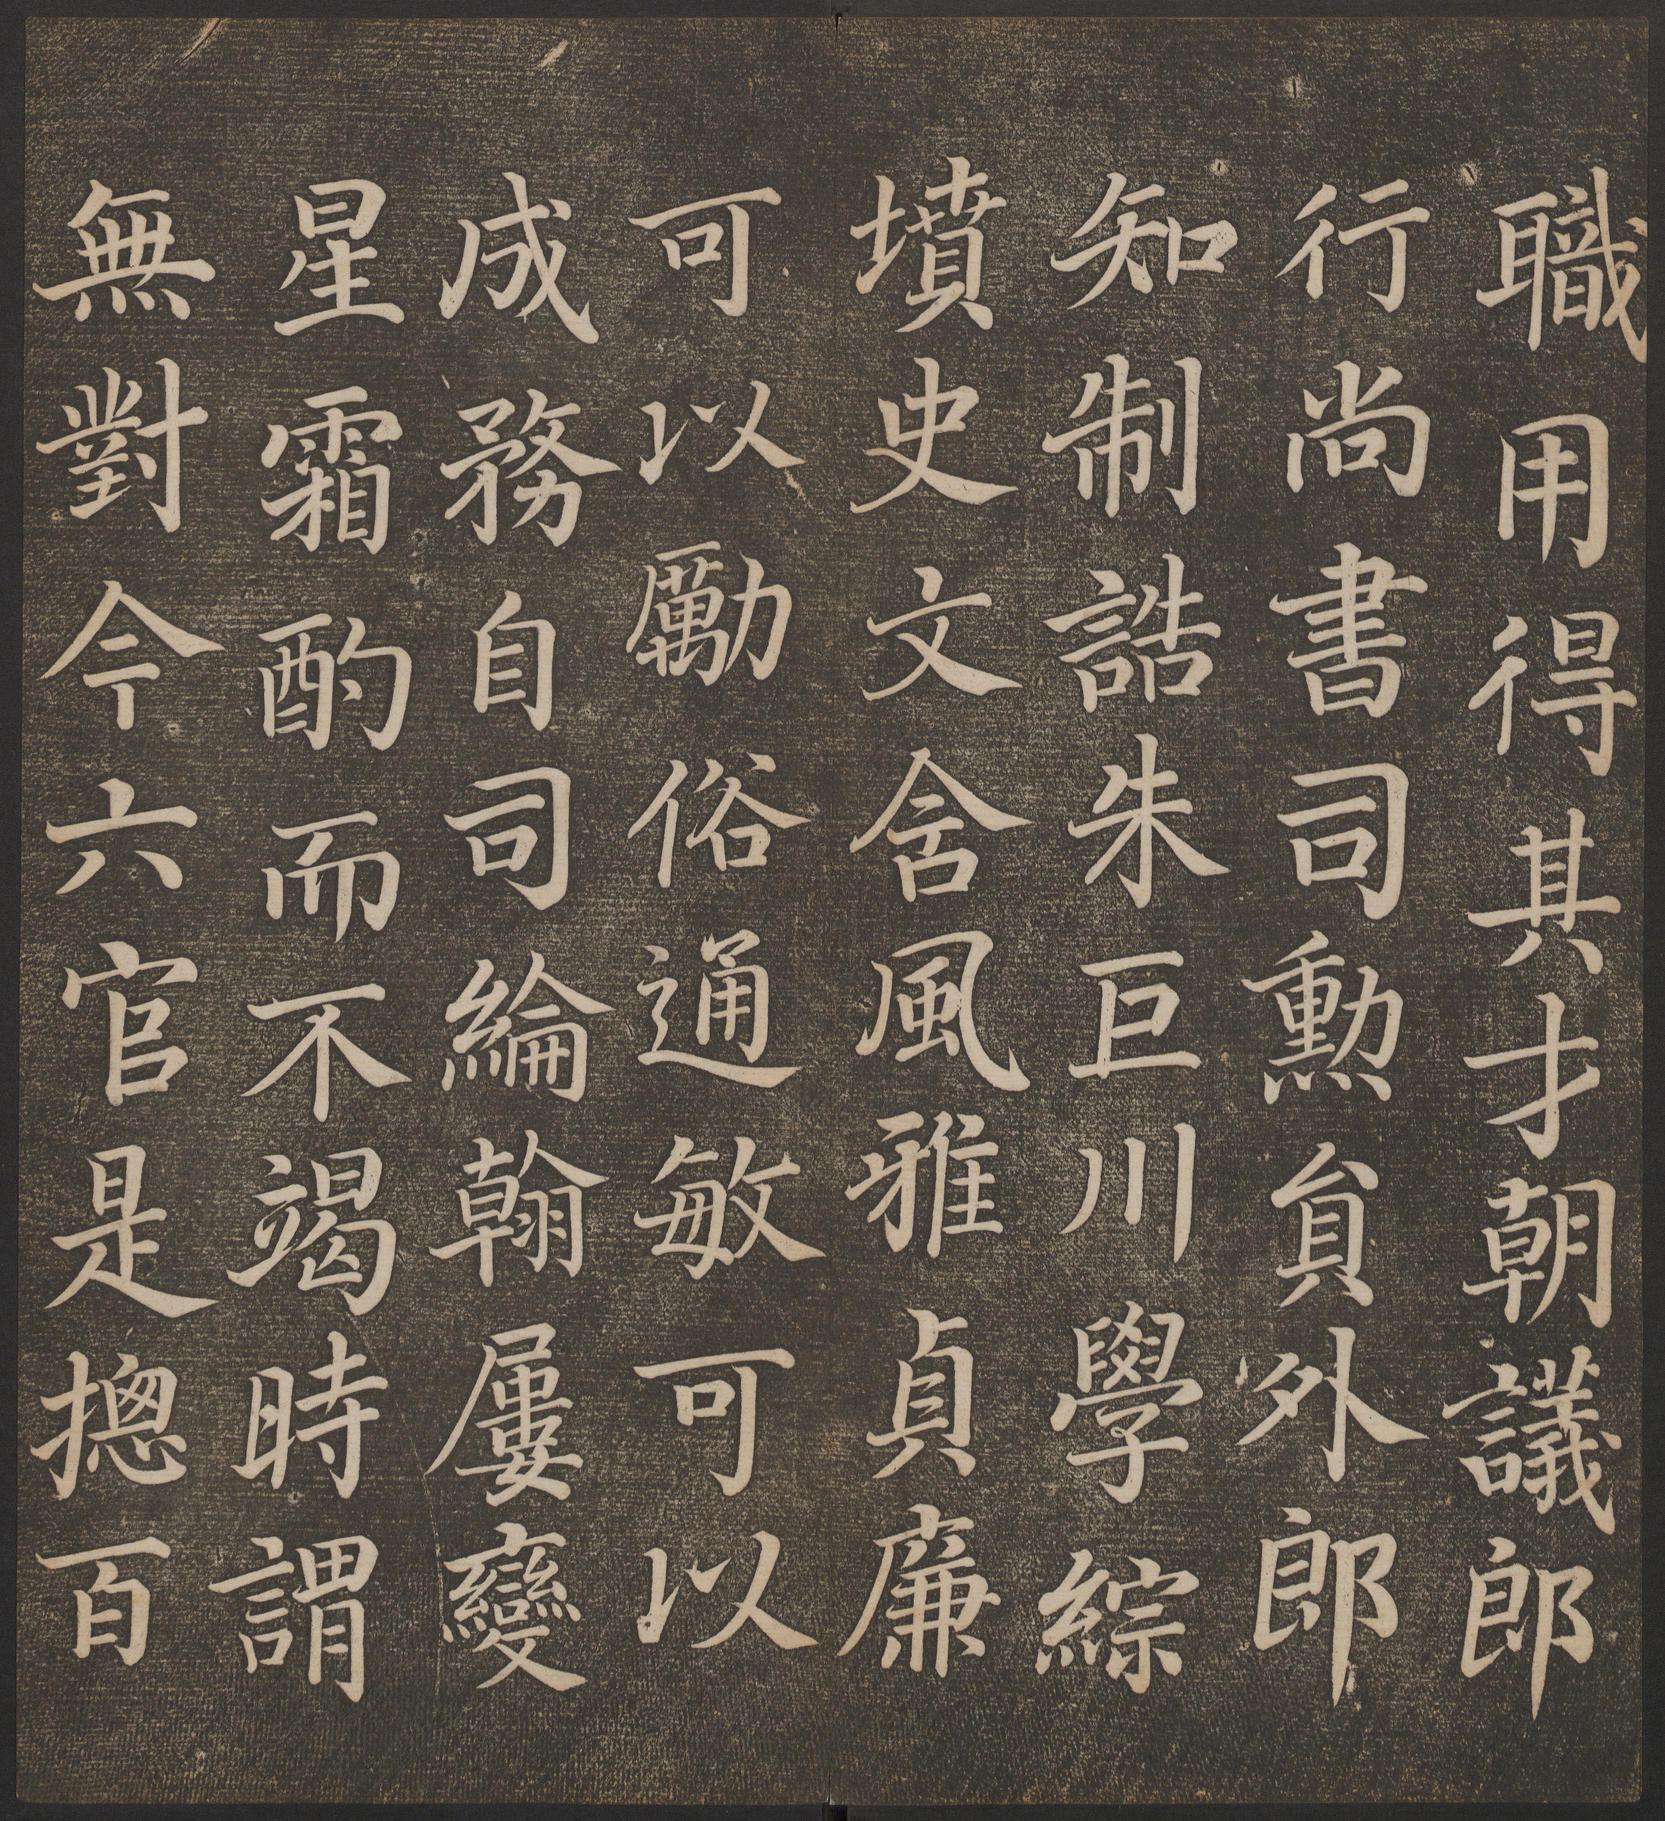 職用得其才朝議郎
行尚書司勳貟外郎
知制誥朱巨川學綜
墳史文含風雅貞廉
可以勵俗通敏可以
成務自司綸翰屢變
星霜酌而不竭時謂
無對今六官是揔百